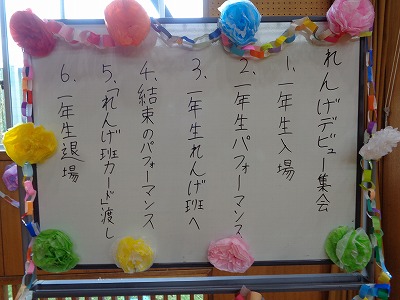 れんげデビュー集会
1、一年生入場
2、一年生パフォーマンス
3、一年生れんげ班へ
4、結束のパフォーマンス
5、「れんげ班カード」渡し
6、一年生退場